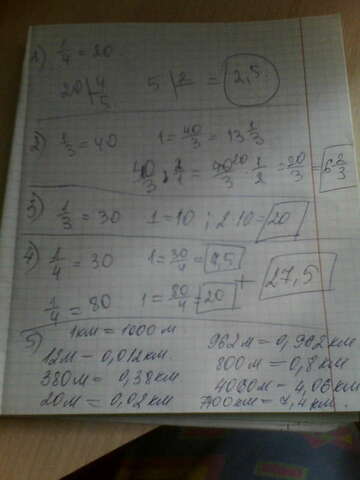 1) 1/4 = 20
20 | 4
5
5 | 2 = 2,5
2) 1/3 = 40 1 = 40/3 = 13 1/3
40/3 : 2/1 = 40 20/3 · 1/2 = 20/3 = 6 2/3
3) 1/3 = 30 1 = 10 ; 2·10 = 20
4) 1/4 = 30 1 = 30/4 = 7,5
+ 27,5
1/4 = 80 1 = 80/4 = 20
5) 1км = 1000 м
12м – 0,012км.
380м = 0,38км.
20м = 0,02км
962м – 0,962 км
800м = 0,8км
4060м – 4,06 км